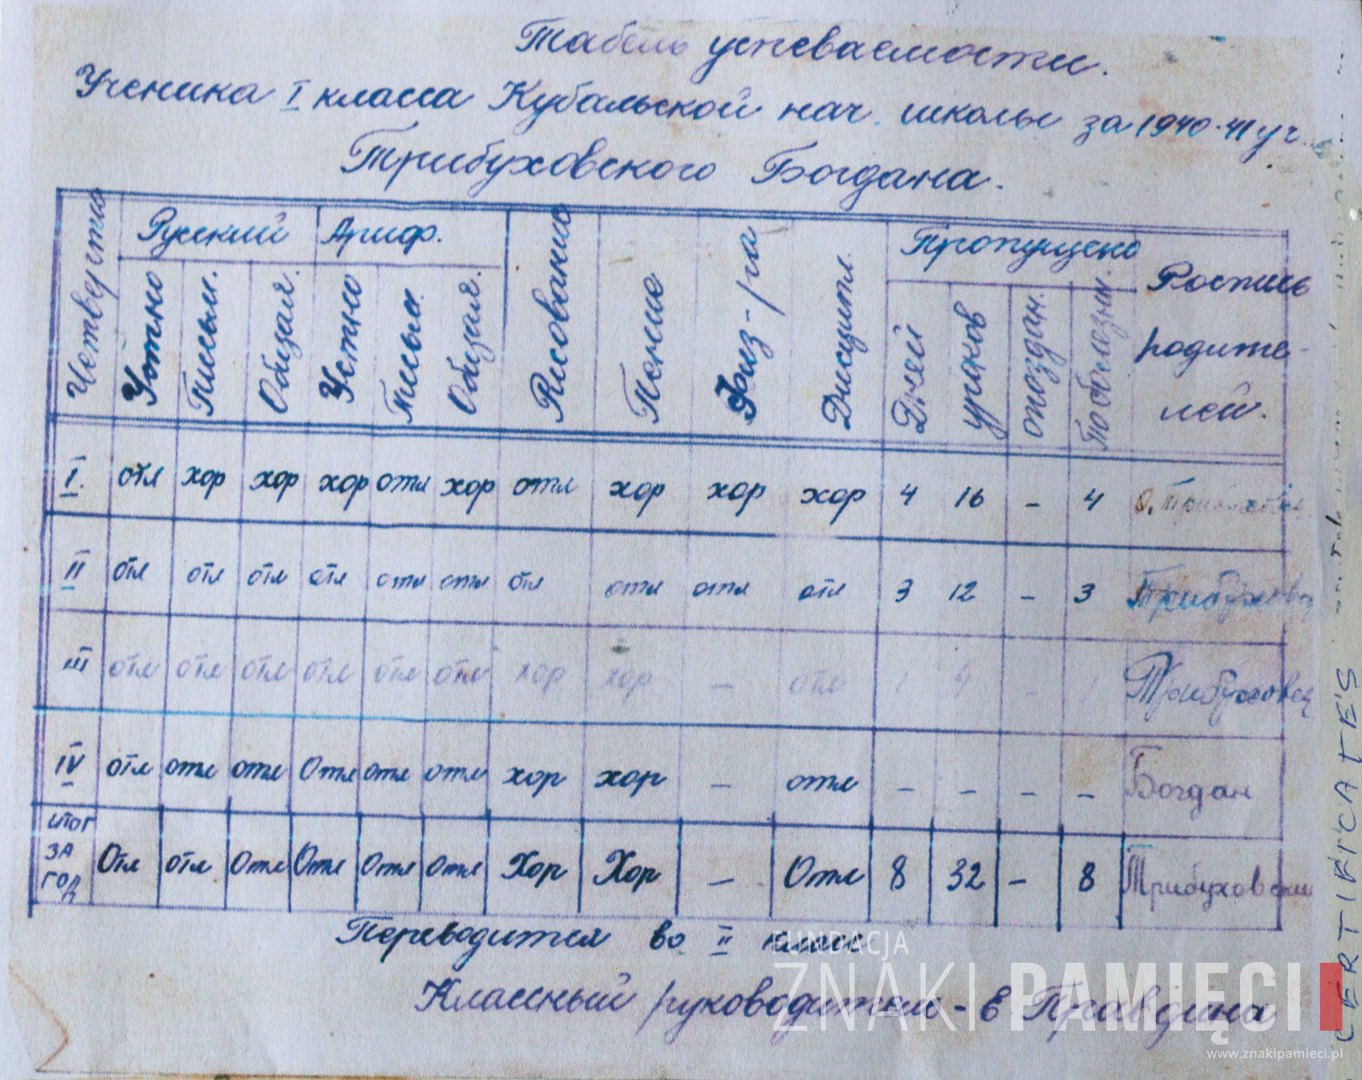 Табель успеваемости.
Ученика I класса Кубальской нач. школы за 1940-41 уч.
Трибуховского Богдана.
Четверть Русский Ариф. Рисование Пение Физ-ра Дисципл. Пропущено Роспись родите-
лей.
Устно Письм. Общая. Устно Письм. Общая. Дней уроков опоздан. По болезни
I. отл хор хор хор отл хор отл хор хор хор 4 16 - 4
II отл отл отл отл отл отл отл отл отл отл 3 12 - 3 Трибуховск
III отл отл отл отл отл отл хор хор - отл 1 4 - 1 Трибуховск
IV отл отл отл Отл отл отл хор хор - отл - - - - Богдан
итог за год Отл отл Отл Отл Отл Отл Хор Хор - Отл 8 32 - 8 Трибуховский
Переводится во II класс
Классный руководитель - Е Правдина
CERTIFICATES
FUNDACJA
ZNAKI PAMIĘCI
www.znakipamieci.pl